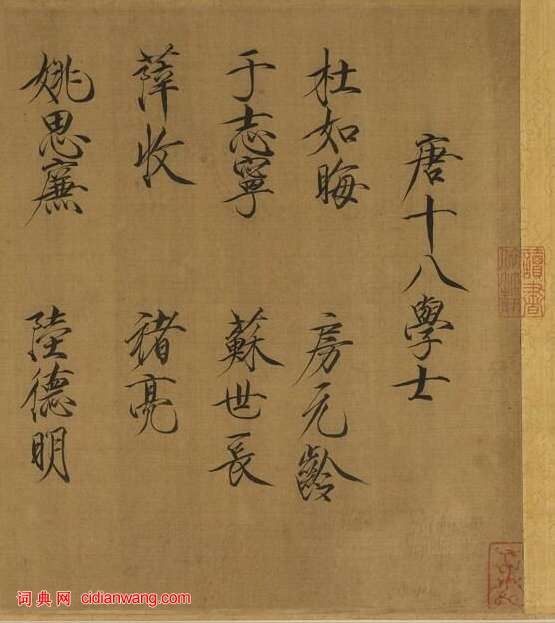 唐十八學士
杜如晦 房元齡
于志寧 蘇世長
薛收 褚亮
姚思廉 陸德明
讀書
词典网 cidianwang.com